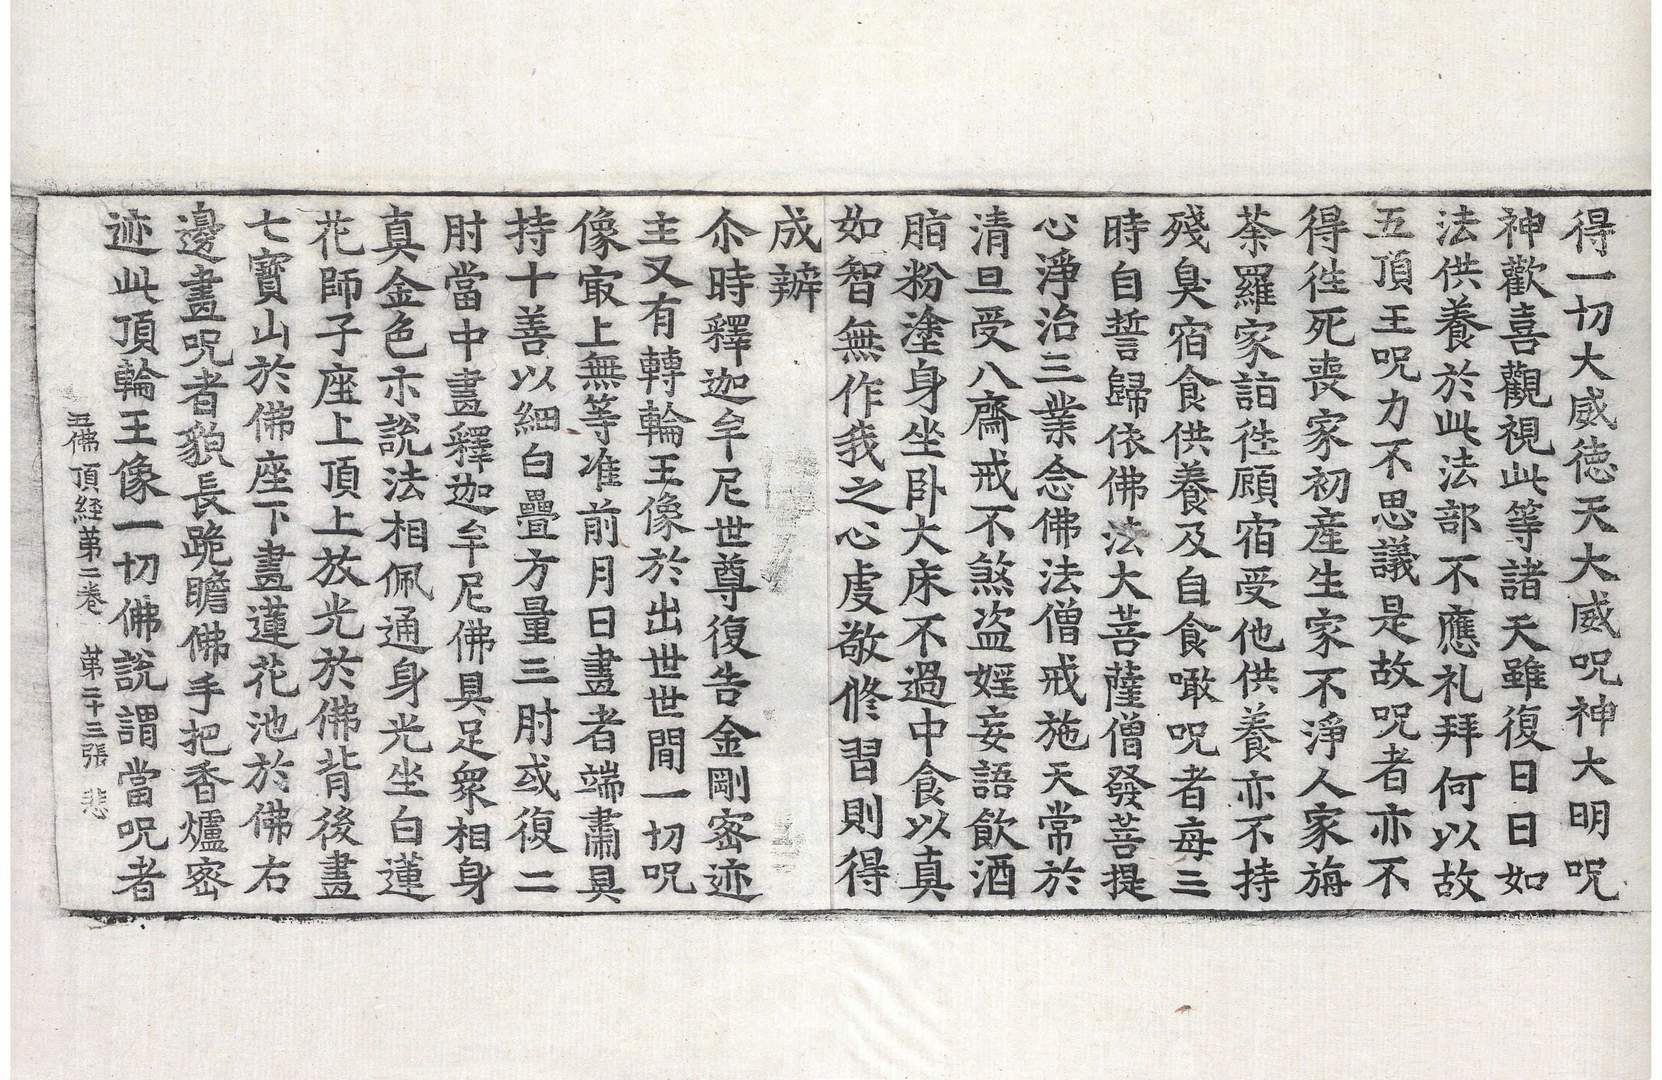 得一切大威德天大威呪神大明呪
神歡喜觀視此等諸天雖復日日如
法供養於此法部不應礼拜何以故
五頂王呪力不思議是故呪者亦不
得徃死喪家初産生家不淨人家旃
荼羅家詣徃顧宿受他供養亦不持
殘臭宿食供養及自食噉呪者每三
時自誓歸依佛法大菩薩僧發菩提
心淨治三業念佛法僧戒施天常於
清旦受八齋戒不煞盜婬妄語飲酒
脂粉塗身坐卧大床不過中食以真
如智無作我之心虔敬修習則得
成辦
尒時釋迦牟尼世尊復告金剛密迹
主又有轉輪王像於出世世間一切呪
像㝡上無等准前月日畫者端肅具
持十善以細白疊方量三肘或復二
肘當中畫釋迦牟尼佛具足衆相身
真金色亦說法相佩通身光坐白蓮
花師子座上頂上放光於佛背後畫
七寶山於佛座下畫蓮花池於佛右
邊畫呪者貌長跪瞻佛手把香爐密
迹此頂輪王像一切佛說謂當呪者
五佛頂経苐二卷 苐二十三張 悲